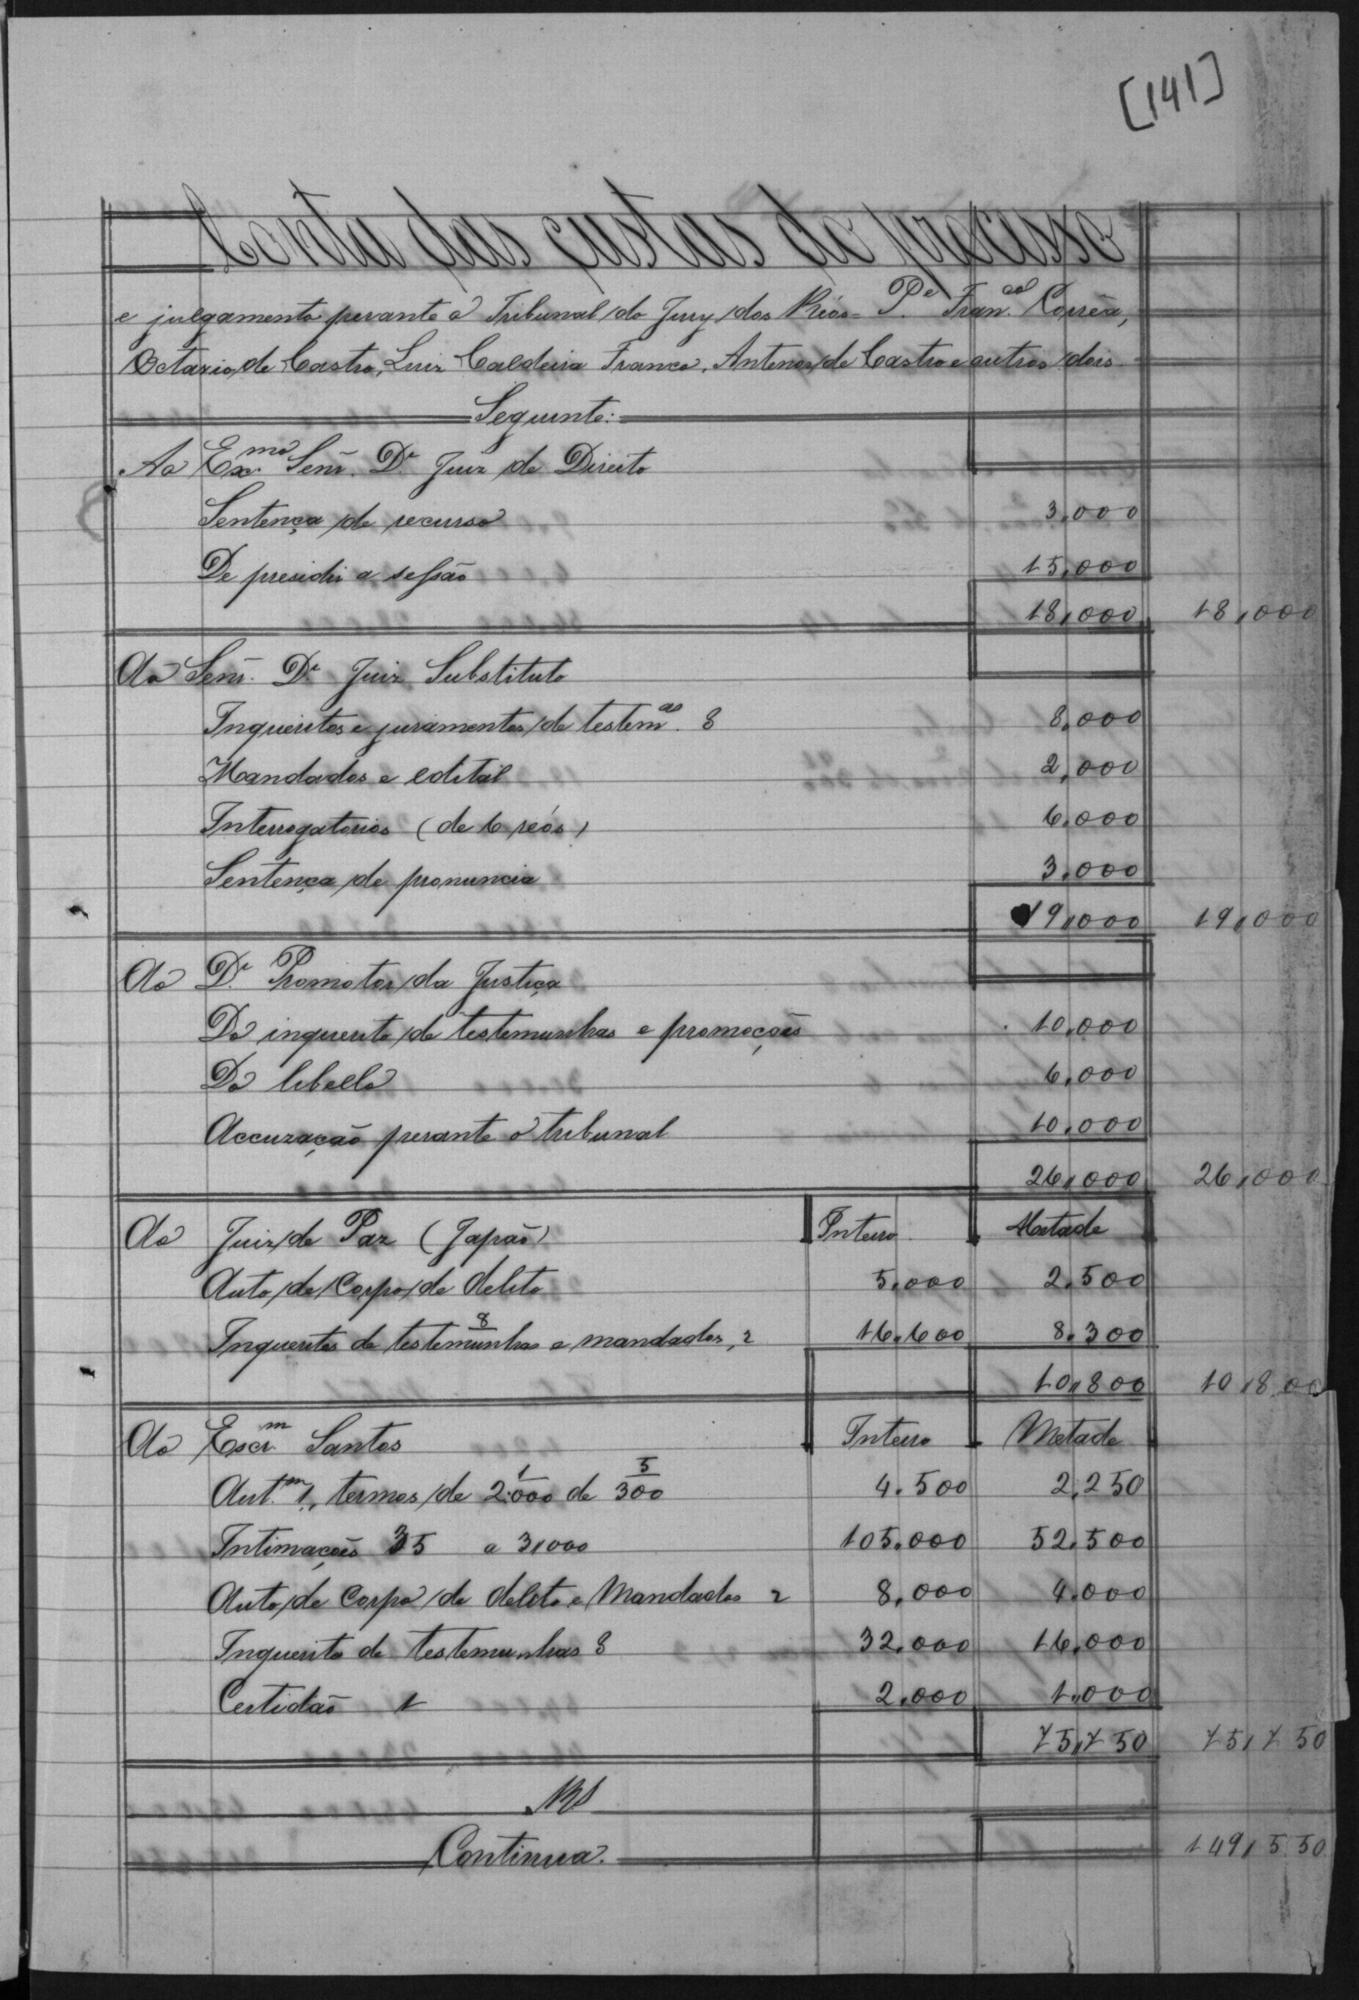 [141]
Conta das custas do processo
e julgamento perante o Tribunal do Jury dos Réos = Pe. Fran.co Corrêa,
Octavio de Castro, Luiz Caldeira Franco, Antenor de Castro e outros dois
Seguinte:
Ao Ex.mo Senr. Dr. Juiz de Direito
Sentença de recurso 3,000
De presidir a sessão 15,000
18,000 18,000
Ao Senr. Dr. Juiz Substituto
Inqueritos e juramentos de testem.as 8 8,000
Mandados e edital 2,000
Interrogatorios (de 6 reós) 6,000
Sentença de pronuncia 3,000
19,000 19,000
Ao Dr. Promotor da Justiça
Do inquerito de testemunhas e promoções 10,000
Do libello 6,000
Accuzação perante o tribunal 10,000
26,000 26,000
Ao Juiz de Paz (Japão) Inteiro Metade
Auto de Corpo de delito 5,000 2,500
Inqueritos de testemunhas 8 e mandados, 2 16,600 8,300
10,800 10,800
Ao Escr.m Santos Inteiro Metade
Aut.m 1, termos de 2:000 1 de 300 5 4.500 2,250
Intimações 35 a 3,000 105,000 52,500
Auto de Corpo de delito e Mandados 2 8,000 4,000
Inquerito de testemunhas 8 32,000 16,000
Certidão 1 2,000 1,000
75,750 75,750
RS
Continua. 149,550